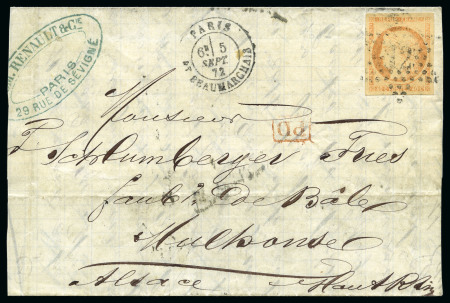 RENAULT & Cie
PARIS
29 RUE DE SÉVIGNÉ
PARIS
6E 5
SEPT
72
Bt BEAUMARCHAIS
Monsieur
Schlumberger Fres
faub: de Bâle
Mulhouse
Alsace Haut Rhin